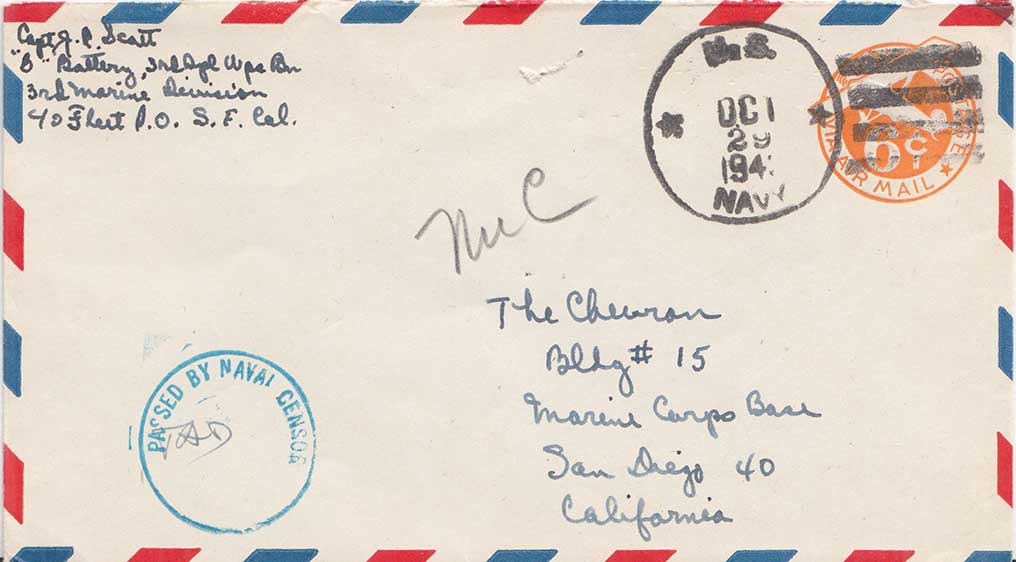 Capt. J. P. Scott
"B" Battery, 3rd Spl Wps Bn
3rd Marine Division
40 Fleet P.O. S. F. Cal.
U.S.
OCT
29
194
NAVY
POSTAGE
6¢
VIA AIR MAIL
The Chevron
Bldg # 15
Marine Corps Base
San Diego 40
California
PASSED BY NAVAL CENSOR